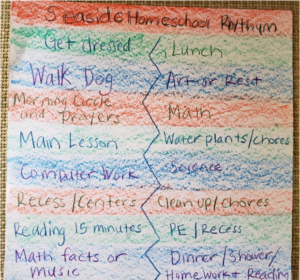 Seaside Homeschool Rhythym
Get dressed
Walk Dog
Morning Circle
and prayers
Main Lesson
Computer Work
Recess/Centers
Reading 15 minutes
Math facts or
music
Lunch
Art or Rest
Math
Water plants/chores
Science
Clean up/chores
PE/Recess
Dinner/Shower/
Homework & Reading